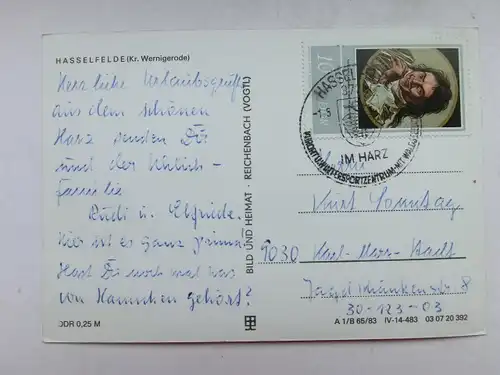 HASSELFELDE (Kr. Wernigerode)
Herzliche Urlaubsgrüße
aus dem schönen
Harz senden Dir
und der Uhlich-
familie
Rudi u. Elfriede.
Hier ist es ganz prima.
Hast Du noch mal was
von Hannchen gehört?
DDR 0,25 M
BILD UND HEIMAT · REICHENBACH (VOGTL)
10
DDR
HASSEL
IM HARZ
Kurt Sonntag
9030 Karl-Marx-Stadt
Jagdschänkenstr 8
30-123-03
A 1/B 65/83 IV-14-483 03 07 20 392